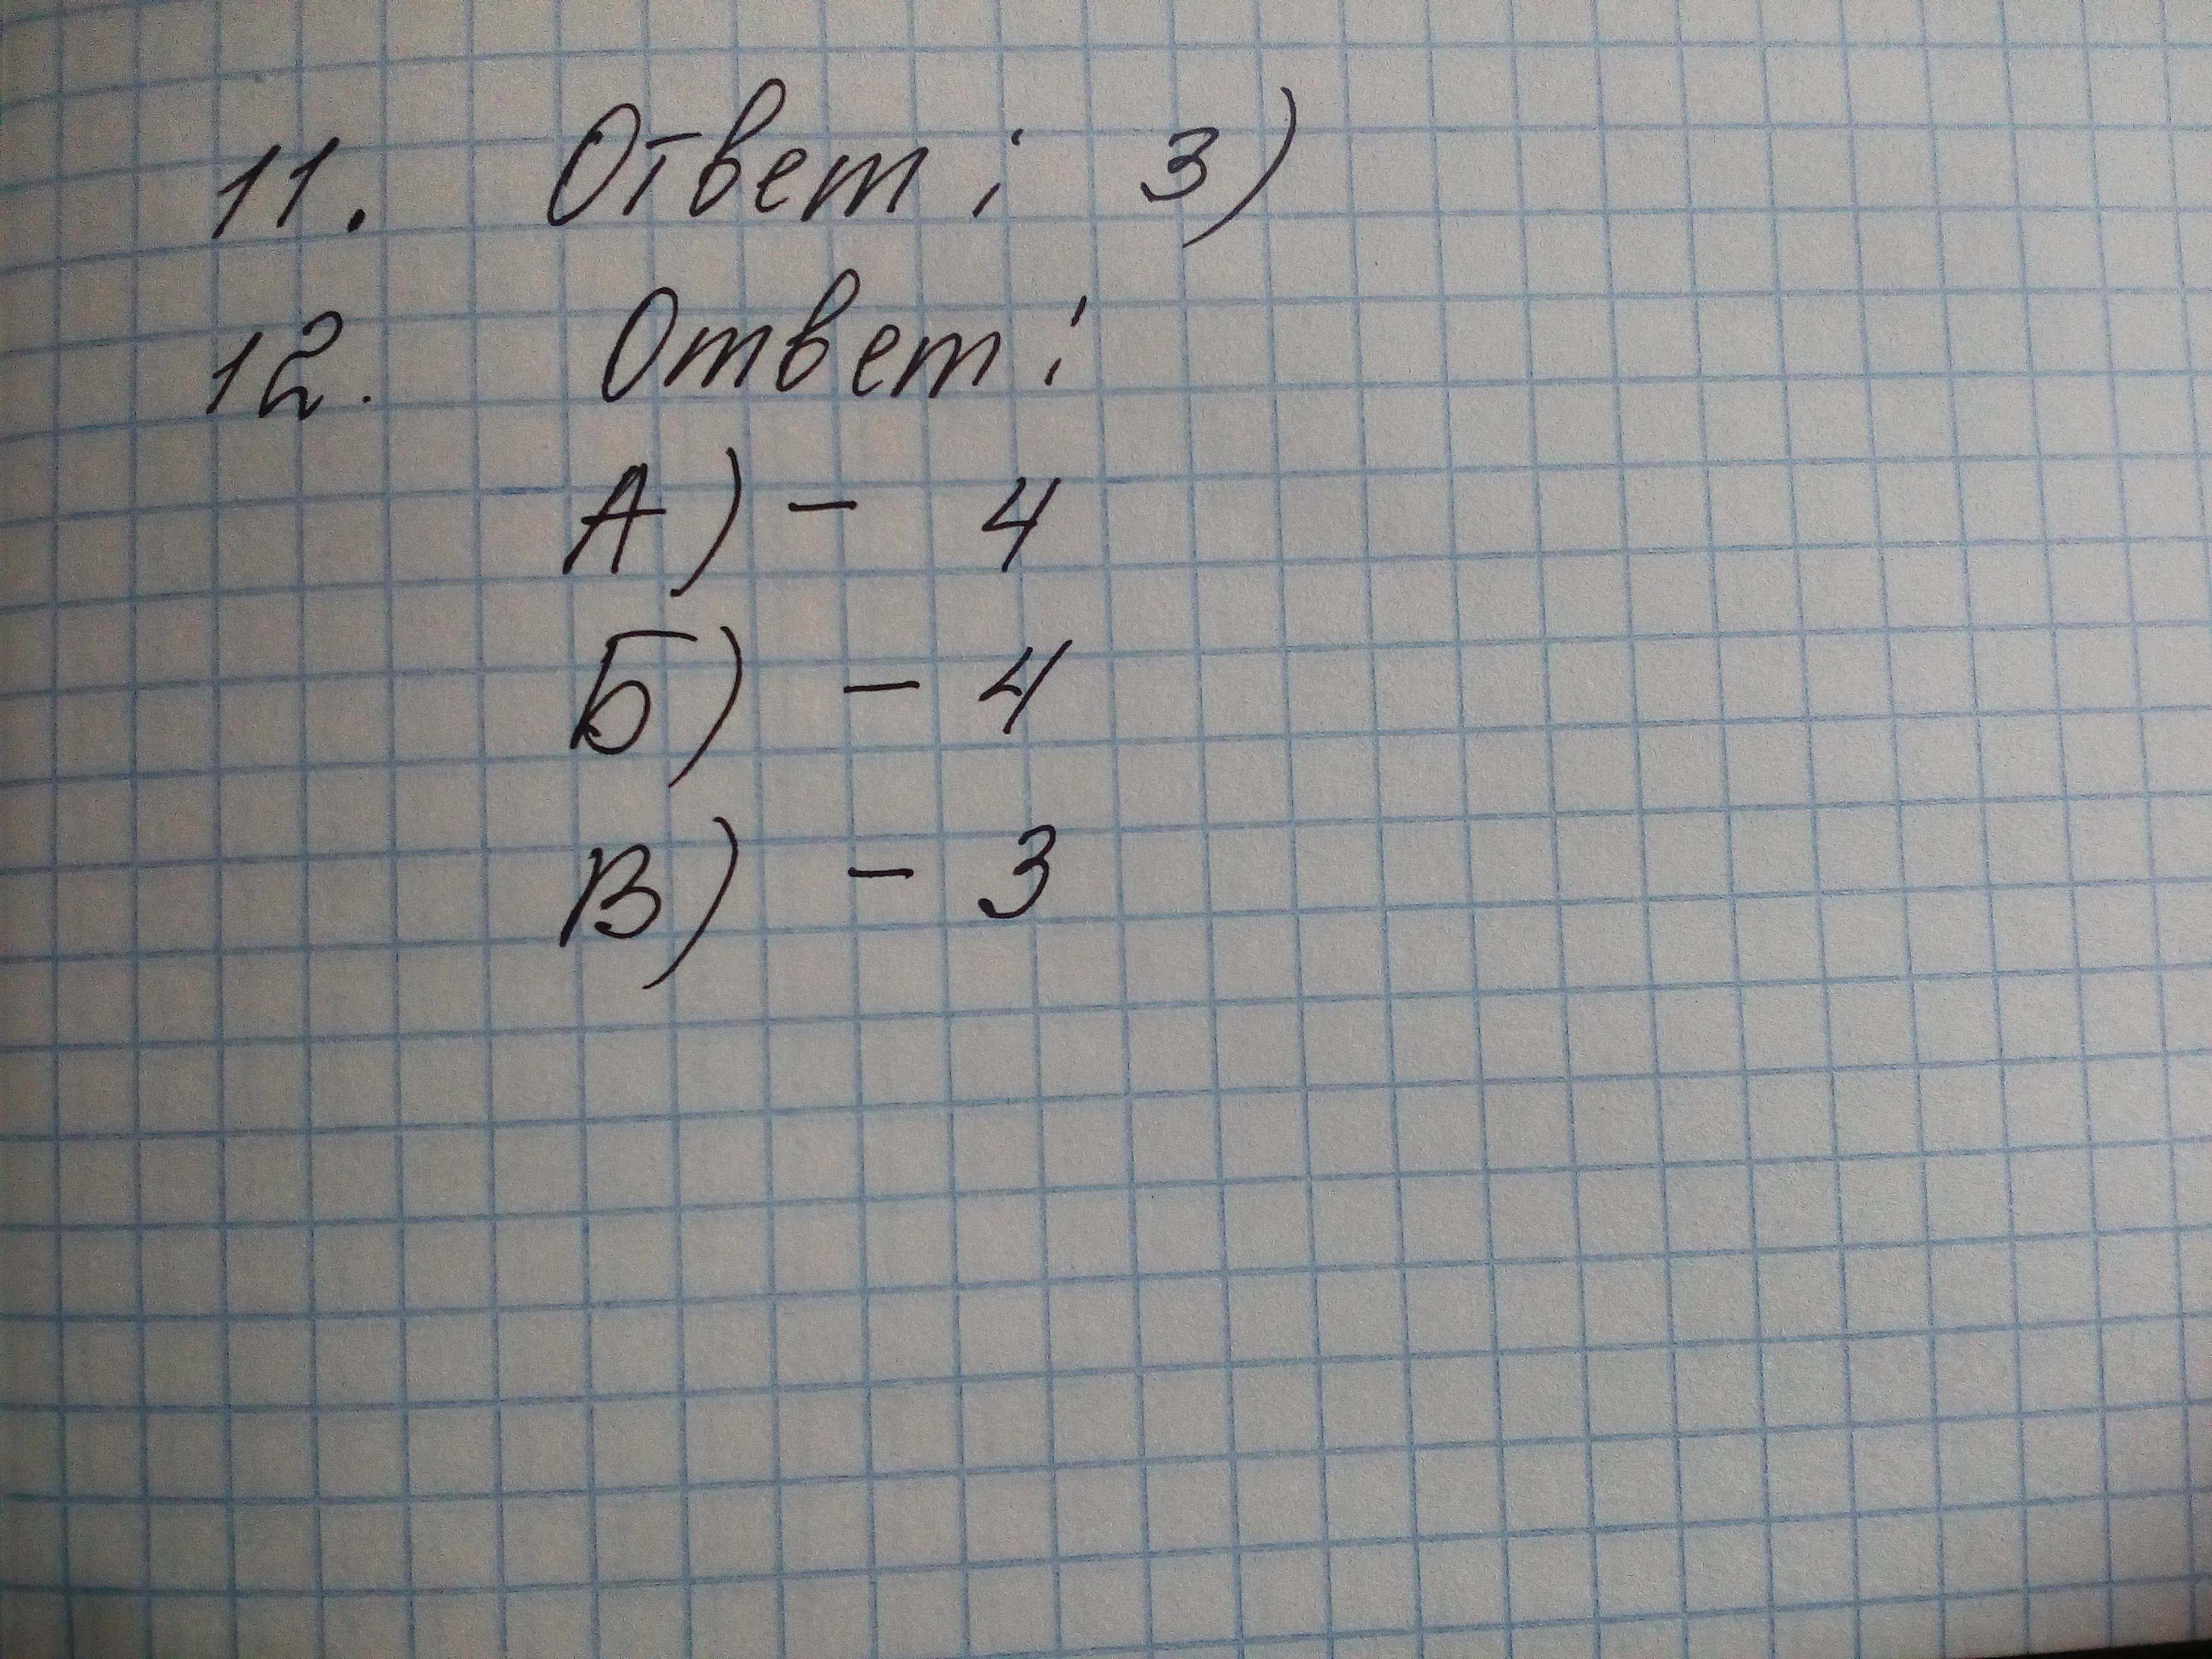 11. Ответ: 3)
12. Ответ:
А) - 4
Б) - 4
В) - 3